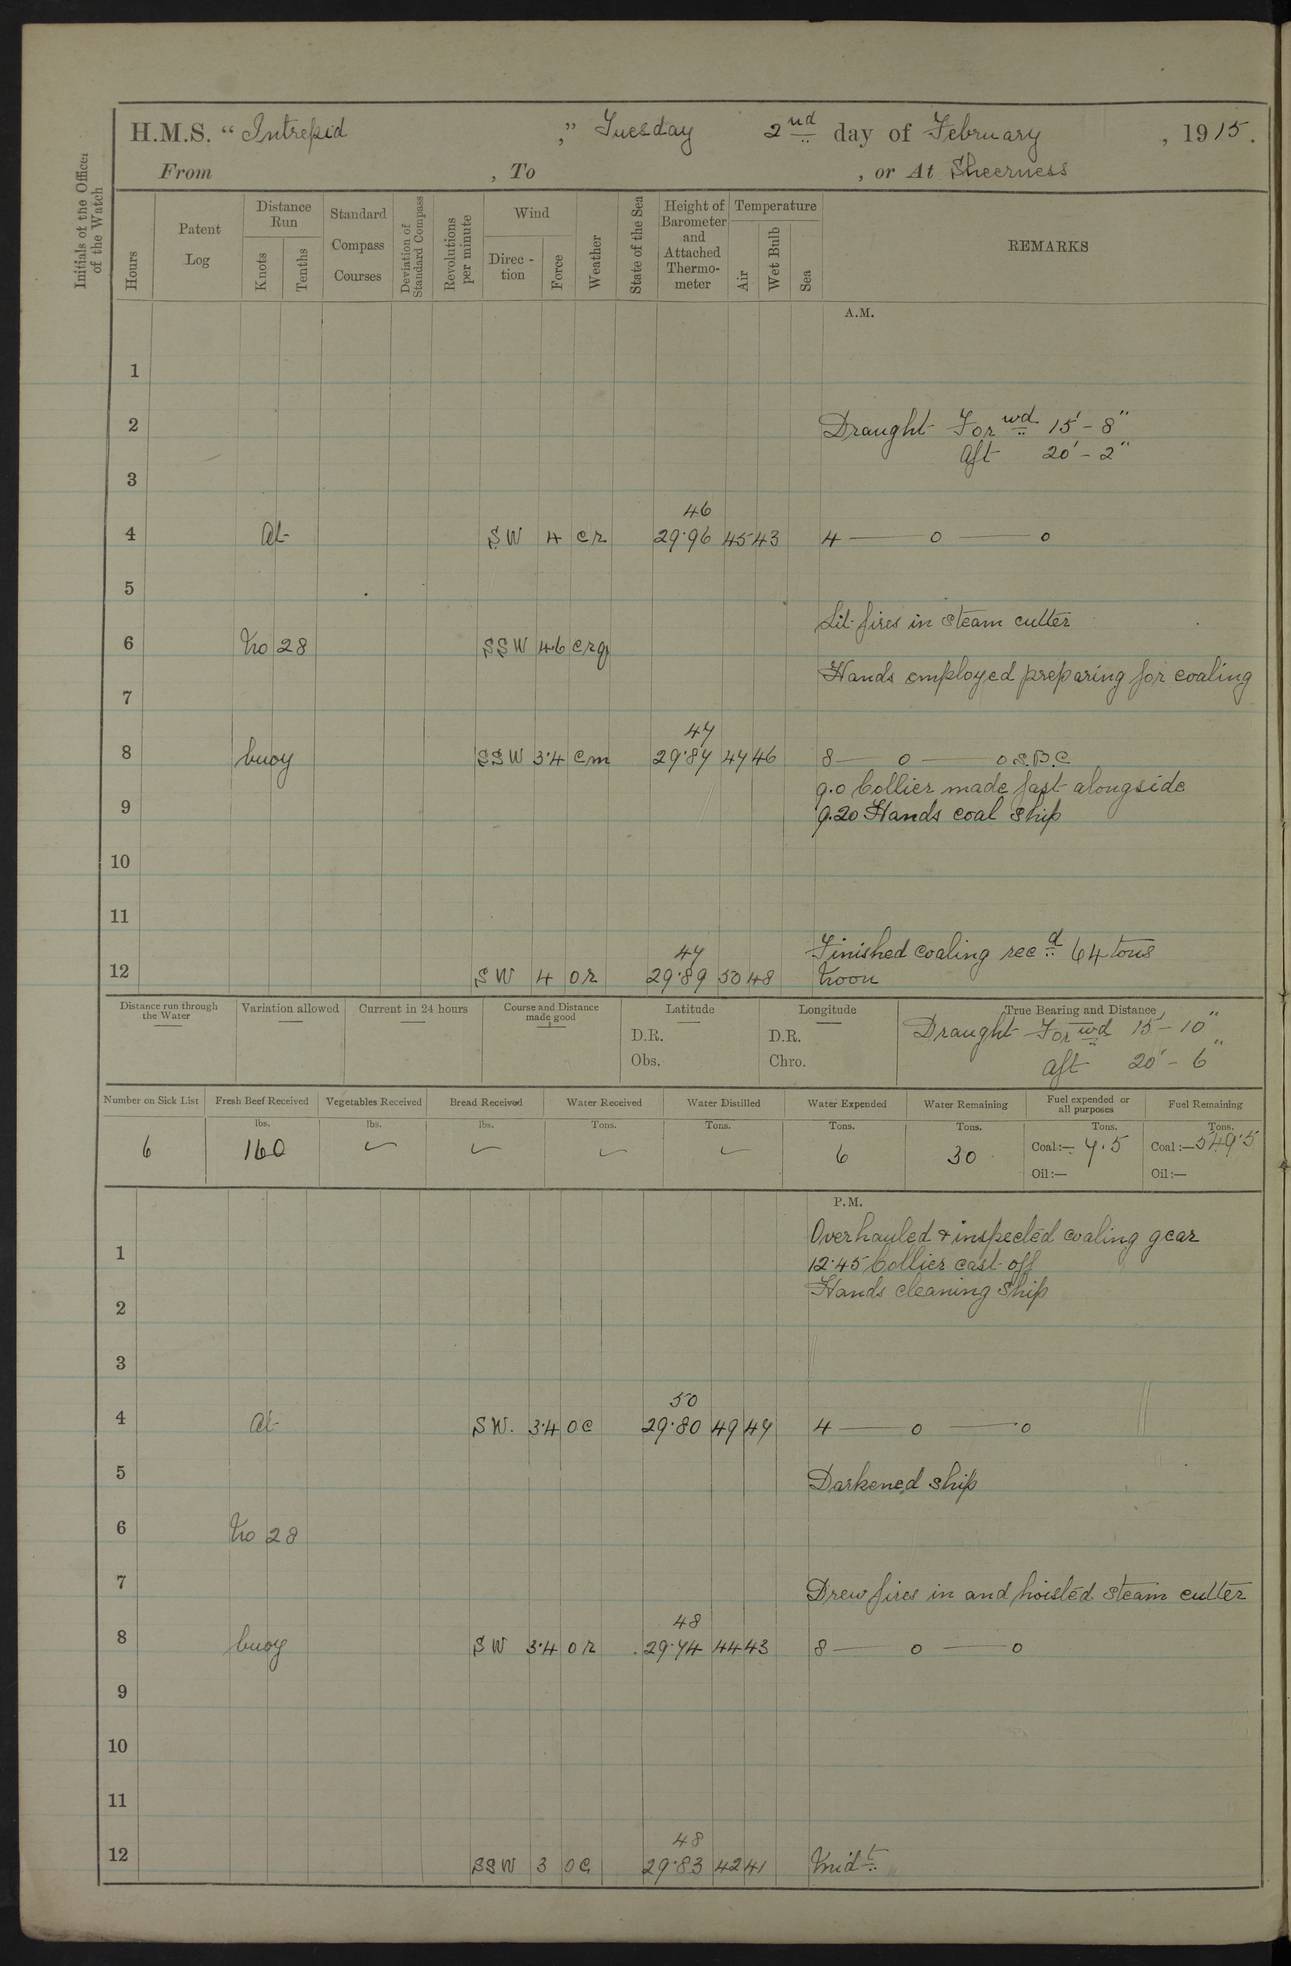 H.M.S. “ Intrepid ,” Tuesday 2nd day of February , 1915.
From , To , or At Sheerness
Initials of the Officer of the Watch
Hours
Patent Log
Distance Run
Knots
Tenths
Standard Compass Courses
Deviation of Standard Compass
Revolutions per minute
Wind
Direc-tion
Force
Weather
State of the Sea
Height of Barometer and Attached Thermo-meter
Temperature
Air
Wet Bulb
Sea
REMARKS
A.M.
1
2 Draught Forwd 15' - 8"
Aft 20' - 2"
3
46
4 At SW 4 cr 29.96 45 43 4 — o — o
5
Lit fires in steam cutter
6 No 28 SSW 4.6 crq
Hands employed preparing for coaling
7
47
8 buoy SSW 3.4 cm 29.87 47 46 8 — o — o S.B.C
9.0 Collier made fast alongside
9 9.20 Hands coal ship
10
11
47 Finished coaling recd 64 tons
12 SW 4 or 29.89 50 48 Noon
Distance run through the Water
Variation allowed
Current in 24 hours
Course and Distance made good
Latitude
D.R.
Obs.
Longitude
D.R.
Chro.
True Bearing and Distance
Draught Forwd 15' - 10"
Aft 20' - 6"
Number on Sick List Fresh Beef Received Vegetables Received Bread Received Water Received Water Distilled Water Expended Water Remaining Fuel expended or all purposes Fuel Remaining
lbs. lbs. lbs. Tons. Tons. Tons. Tons. Tons. Tons.
6 160 ✓ ✓ ✓ ✓ 6 30 Coal:— 7.5 Coal:— 549.5
Oil:— Oil:—
P.M.
Overhauled & inspected coaling gear
1 12.45 Collier cast off
Hands cleaning ship
2
3
50
4 At SW. 3.4 oc 29.80 49 47 4 — o — o
5 Darkened ship
6 No 28
7 Drew fires in and hoisted steam cutter
48
8 buoy SW 3.4 or 29.74 44 43 8 — o — o
9
10
11
48
12 SSW 3 oc 29.83 42 41 Midt